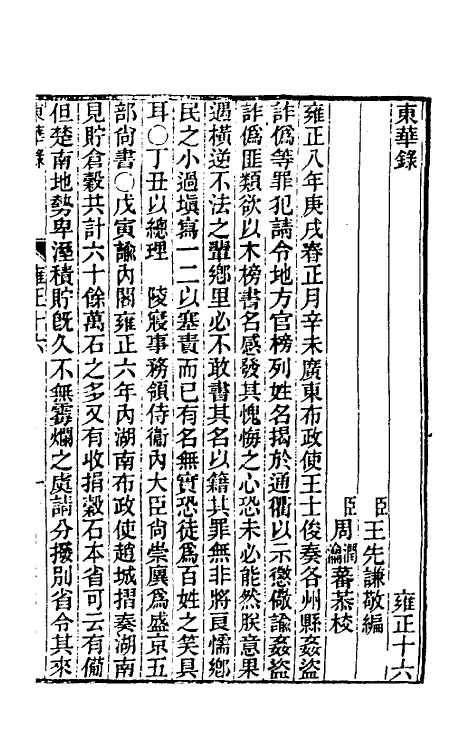 東華錄　雍正十六
臣王先謙敬編
臣周潤蕃 瀹蕃恭校
雍正八年庚戌春正月辛未廣東布政使王士俊奏各州縣姦盜
詐僞等罪犯請令地方官榜列姓名揭於通衢以示懲儆諭姦盜
詐僞匪類欲以木榜書名感發其愧悔之心恐未必能然朕意果
遇橫逆不法之輩鄉里必不敢書其名以籍其罪無非將良懦鄉
民之小過塡寫一二以塞責而已有名無實恐徒爲百姓之笑具
耳○丁丑以總理　陵寢事務領侍衞內大臣尙崇廙爲盛京五
部尙書○戊寅諭內閣雍正六年內湖南布政使趙城摺奏湖南
見貯倉穀共計六十餘萬石之多又有收捐穀石本省可云有備
但楚南地勢卑溼積貯旣久不無霉爛之虞請分撥別省令其來
東華錄　雍正十六　一